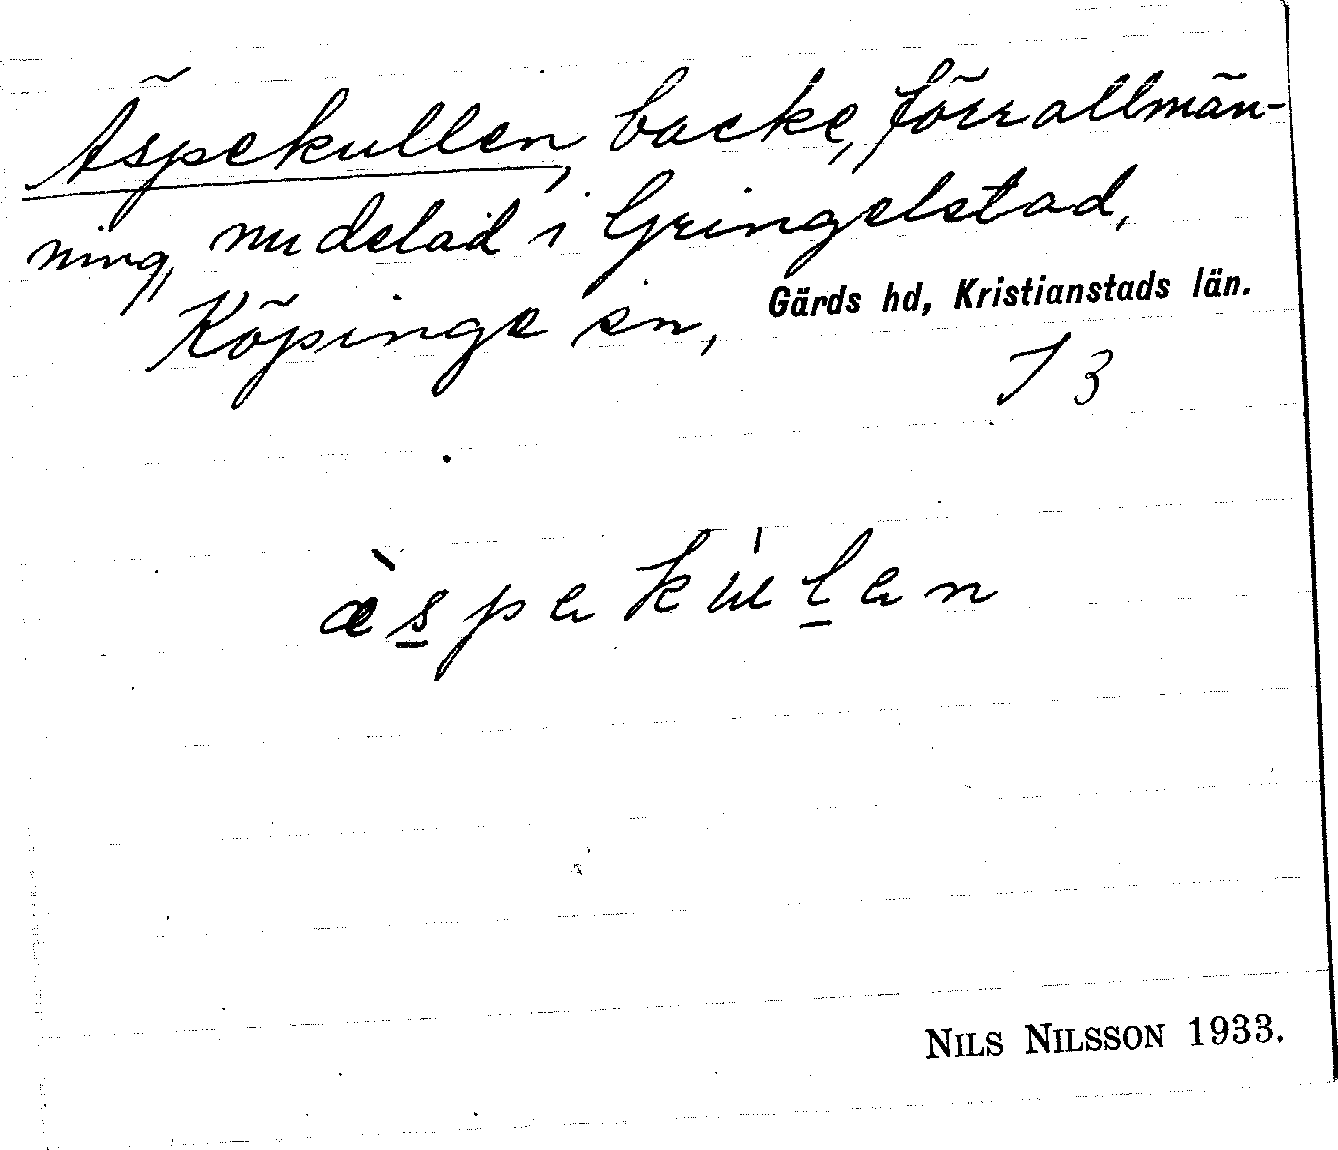 Äspekullen, backe, förr allmän-
ning, nu delad i Gringelstad,
Köpinge sn, Gärds hd, Kristianstads län.
I 3
æ̀spekúlen
NILS NILSSON 1933.